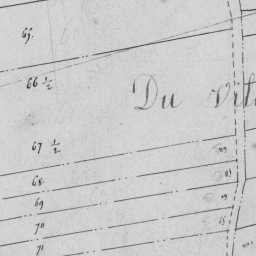 65.
66 1/2
Du Vil
67 1/2
68
69
70
71